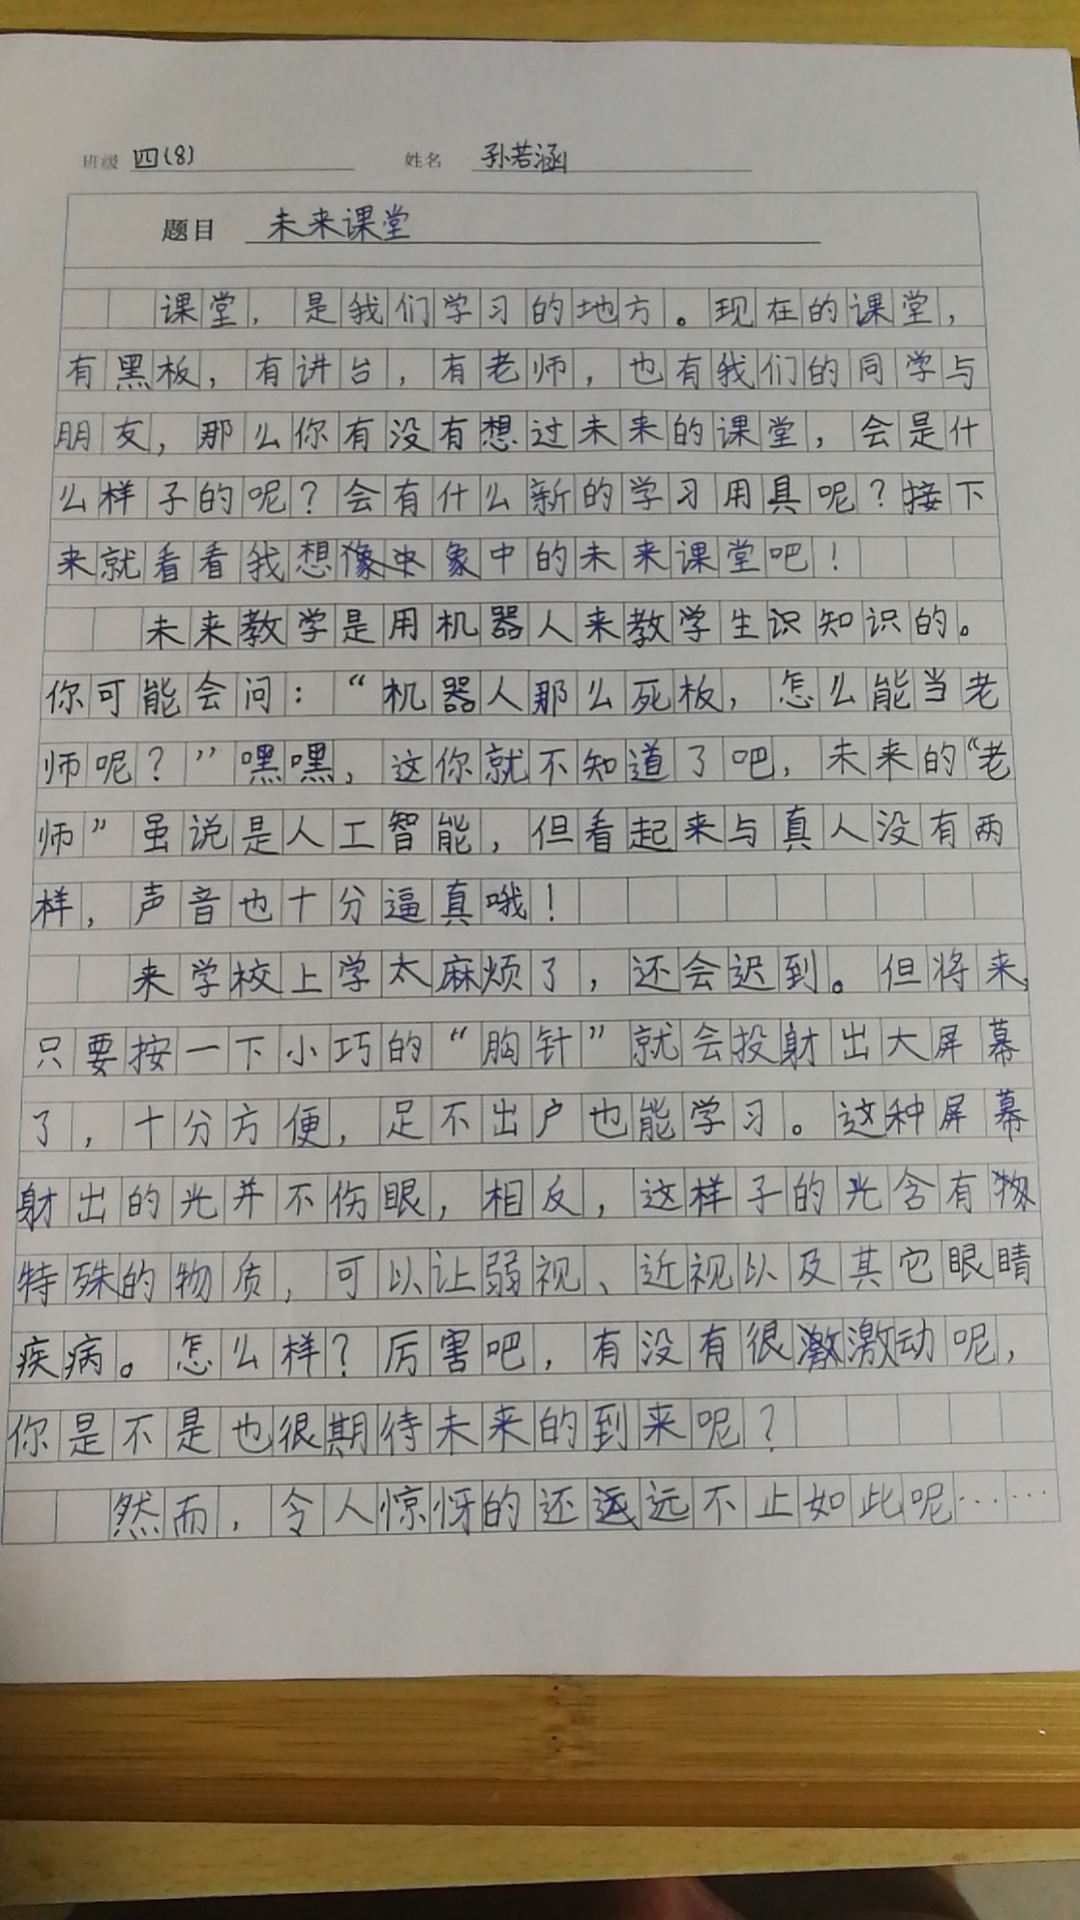 班级 四(8) 姓名 孙若涵
题目 未来课堂
课堂，是我们学习的地方。现在的课堂，
有黑板，有讲台，有老师，也有我们的同学与
朋友，那么你有没有想过未来的课堂，会是什
么样子的呢？会有什么新的学习用具呢？接下
来就看看我想象中的未来课堂吧！
未来教学是用机器人来教学生识知识的。
你可能会问：“机器人那么死板，怎么能当老
师呢？”嘿嘿，这你就不知道了吧，未来的“老
师”虽说是人工智能，但看起来与真人没有两
样，声音也十分逼真哦！
来学校上学太麻烦了，还会迟到。但将来，
只要按一下小巧的“胸针”就会投射出大屏幕
了，十分方便，足不出户也能学习。这种屏幕
射出的光并不伤眼，相反，这样子的光含有
特殊的物质，可以让弱视、近视以及其它眼睛
疾病。怎么样？厉害吧，有没有很激动呢，
你是不是也很期待未来的到来呢？
然而，令人惊讶的还远不止如此呢……